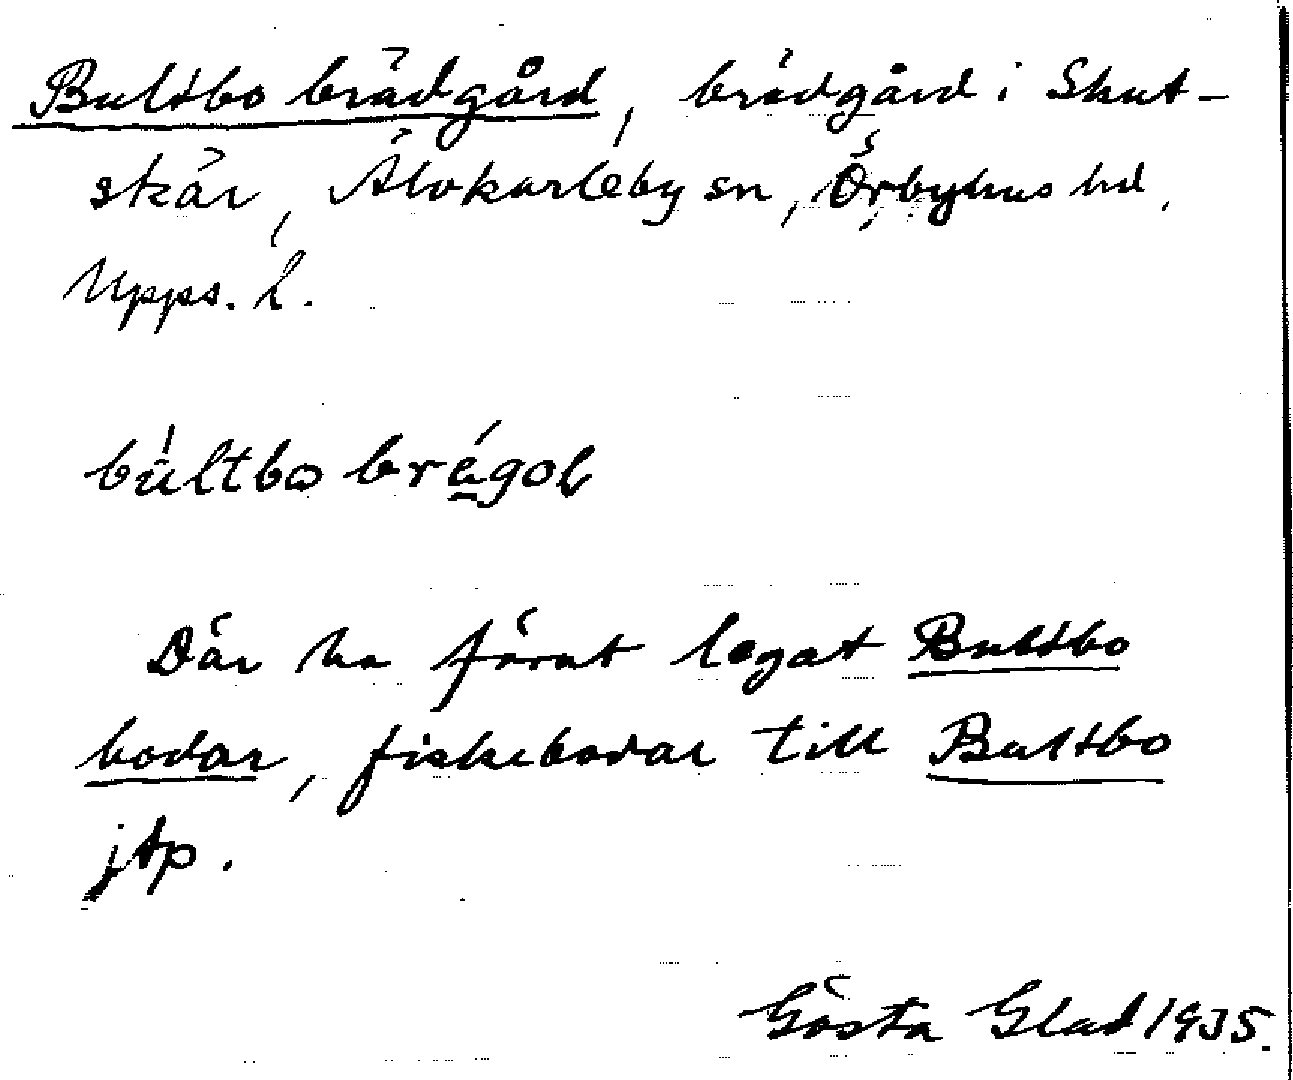 Bultbo brädgård, brädgård i Skut-
skär, Älvkarleby sn, Örbyhus hd,
Upps. l.
búltbo brégoḷ
Där ha förut legat Bultbo
bodar, fiskebodar till Bultbo
jtp.
Gösta Glad 1935.